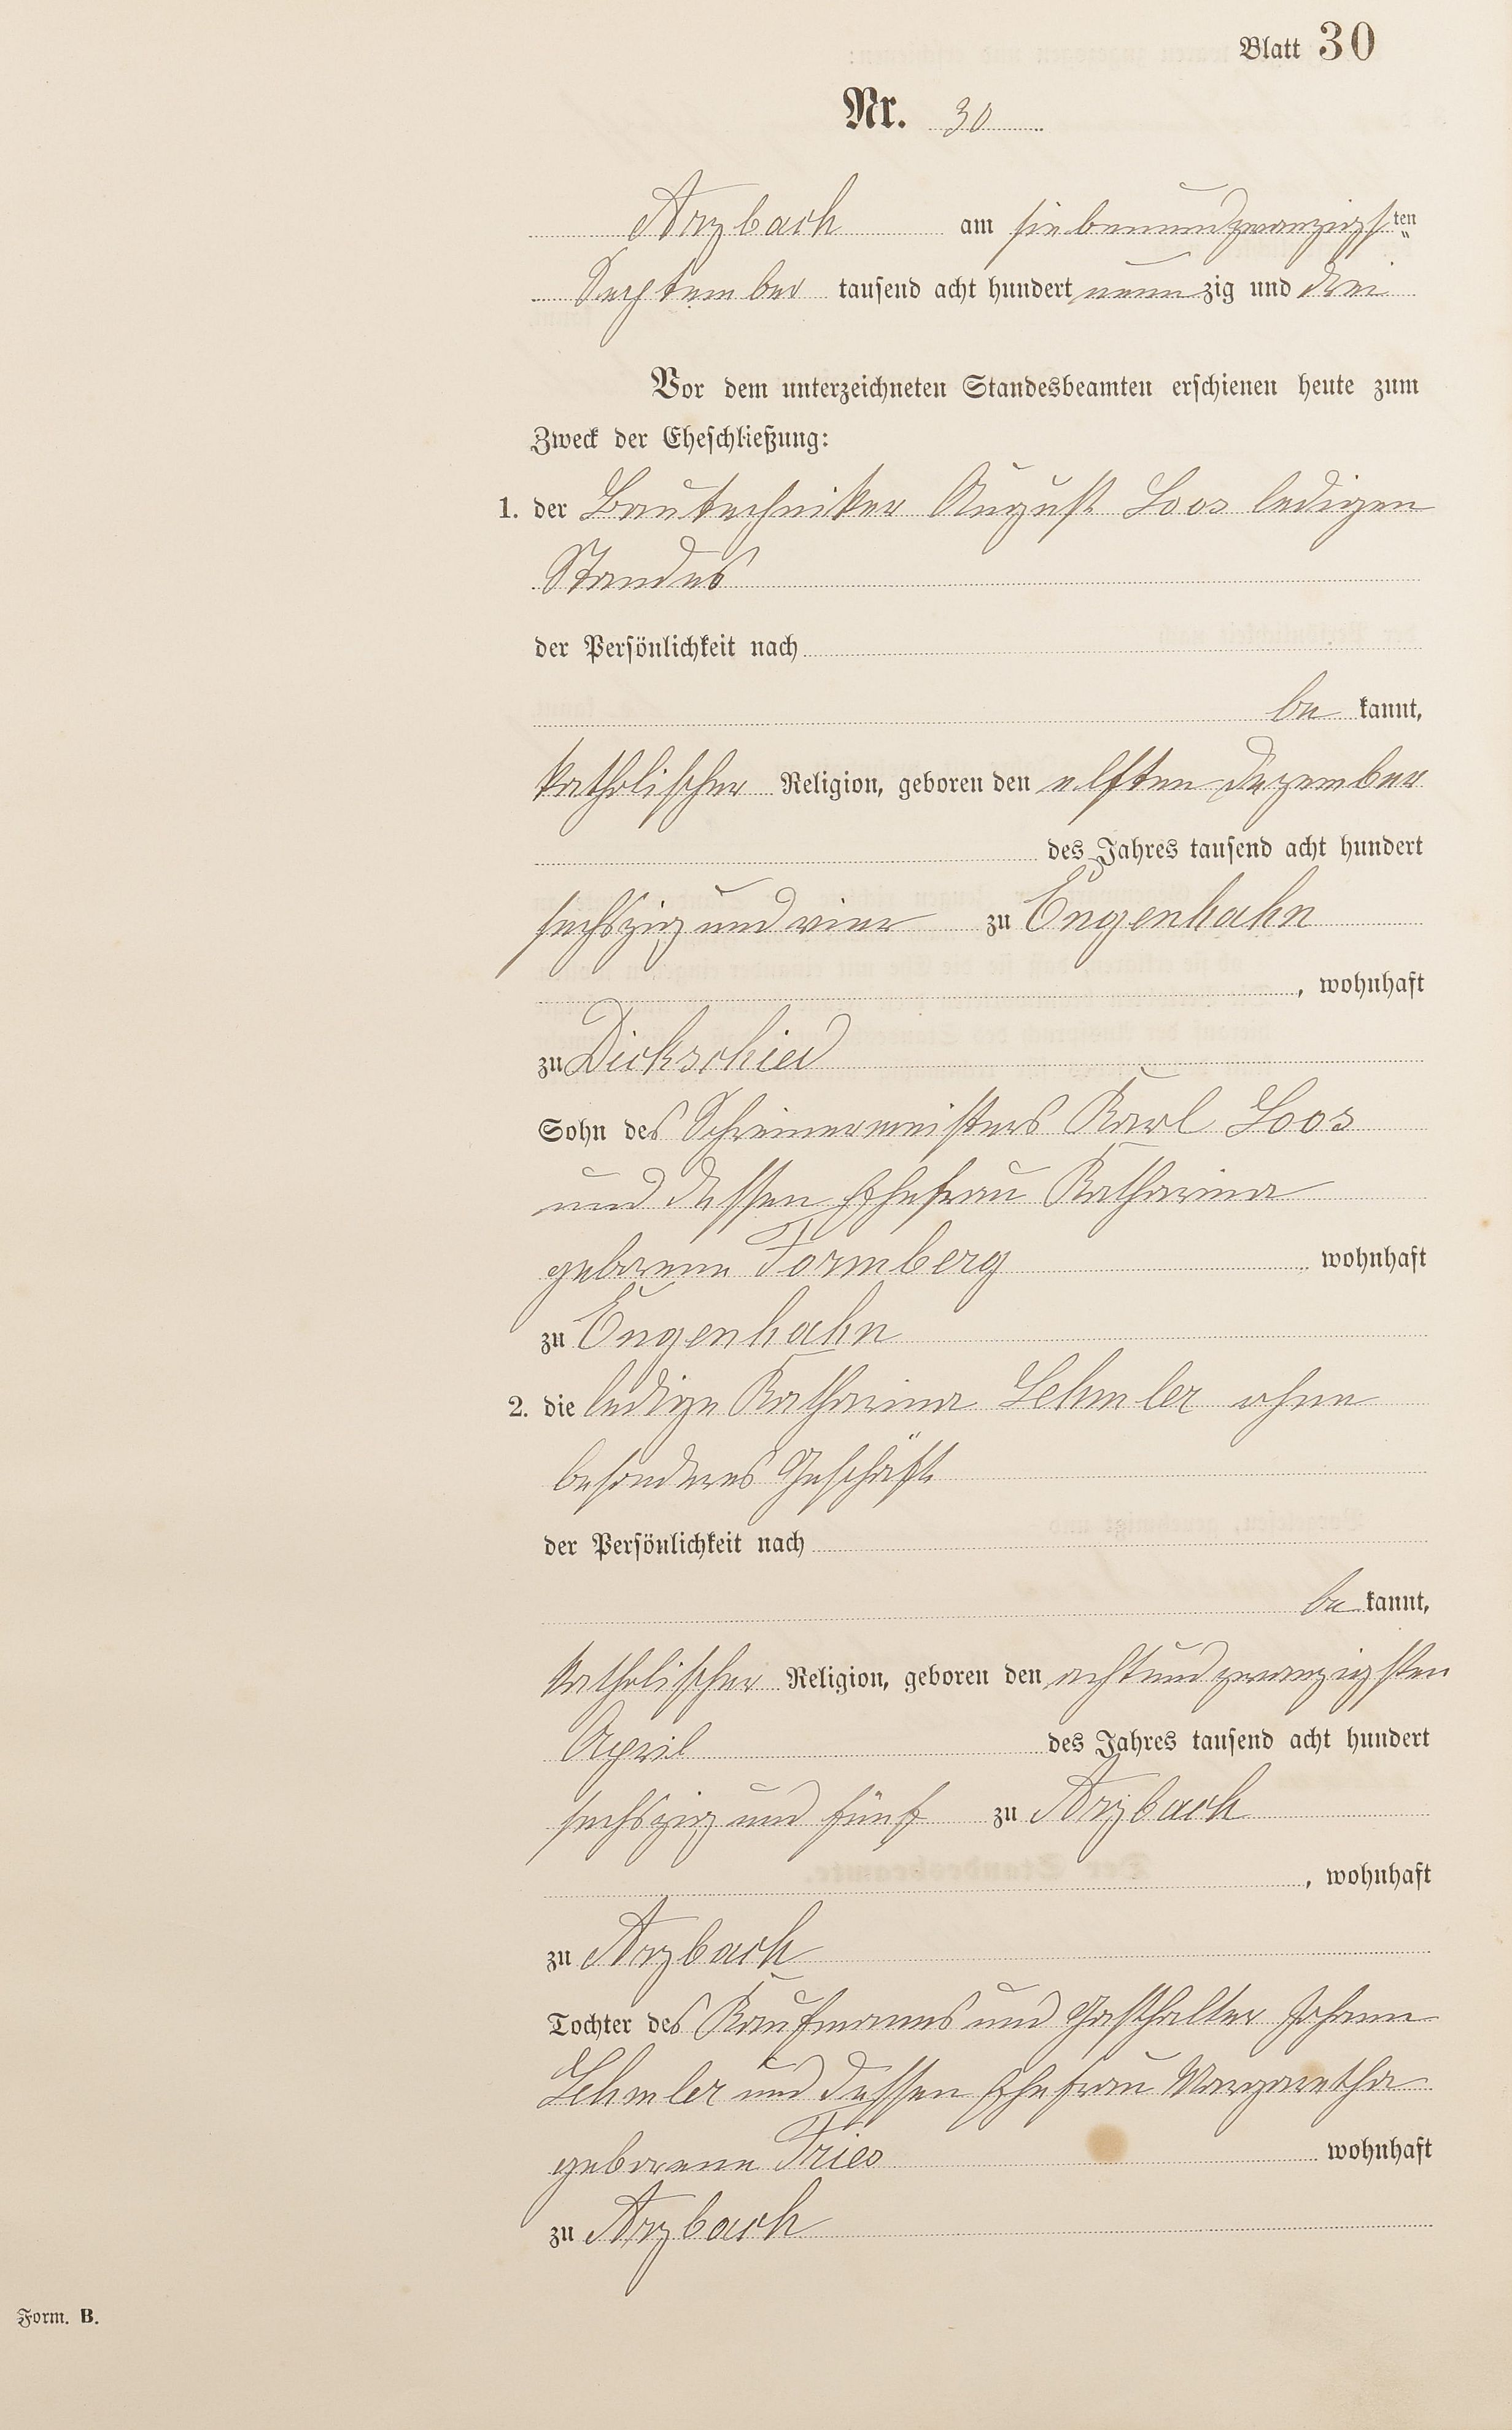 Blatt 30
Nr. 30
Arzbach am siebenundzwanzigsten
September tausend acht hundert neunzig und drei
Vor dem unterzeichneten Standesbeamten erschienen heute zum
Zweck der Eheschließung:
1. der Bautechniker August Loos ledigen
Standes
der Persönlichkeit nach
be kannt,
katholischer Religion, geboren den elften Dezember
des Jahres tausend acht hundert
sechszig und vier zu Engenhahn
, wohnhaft
zu Dickschied
Sohn des Schreinermeisters Karl Loos
und dessen Ehefrau Katharina
geborene Formberg wohnhaft
zu Engenhahn
2. die ledige Katharina Lehmler ohne
besonderes Geschäft
der Persönlichkeit nach
be kannt,
katholischer Religion, geboren den achtundzwanzigsten
April des Jahres tausend acht hundert
sechszig und fünf zu Arzbach
, wohnhaft
zu Arzbach
Tochter des Kaufmanns und Gasthalter Johann
Lehmler und dessen Ehefrau Margaretha
geborene Fries wohnhaft
zu Arzbach
Form. B.